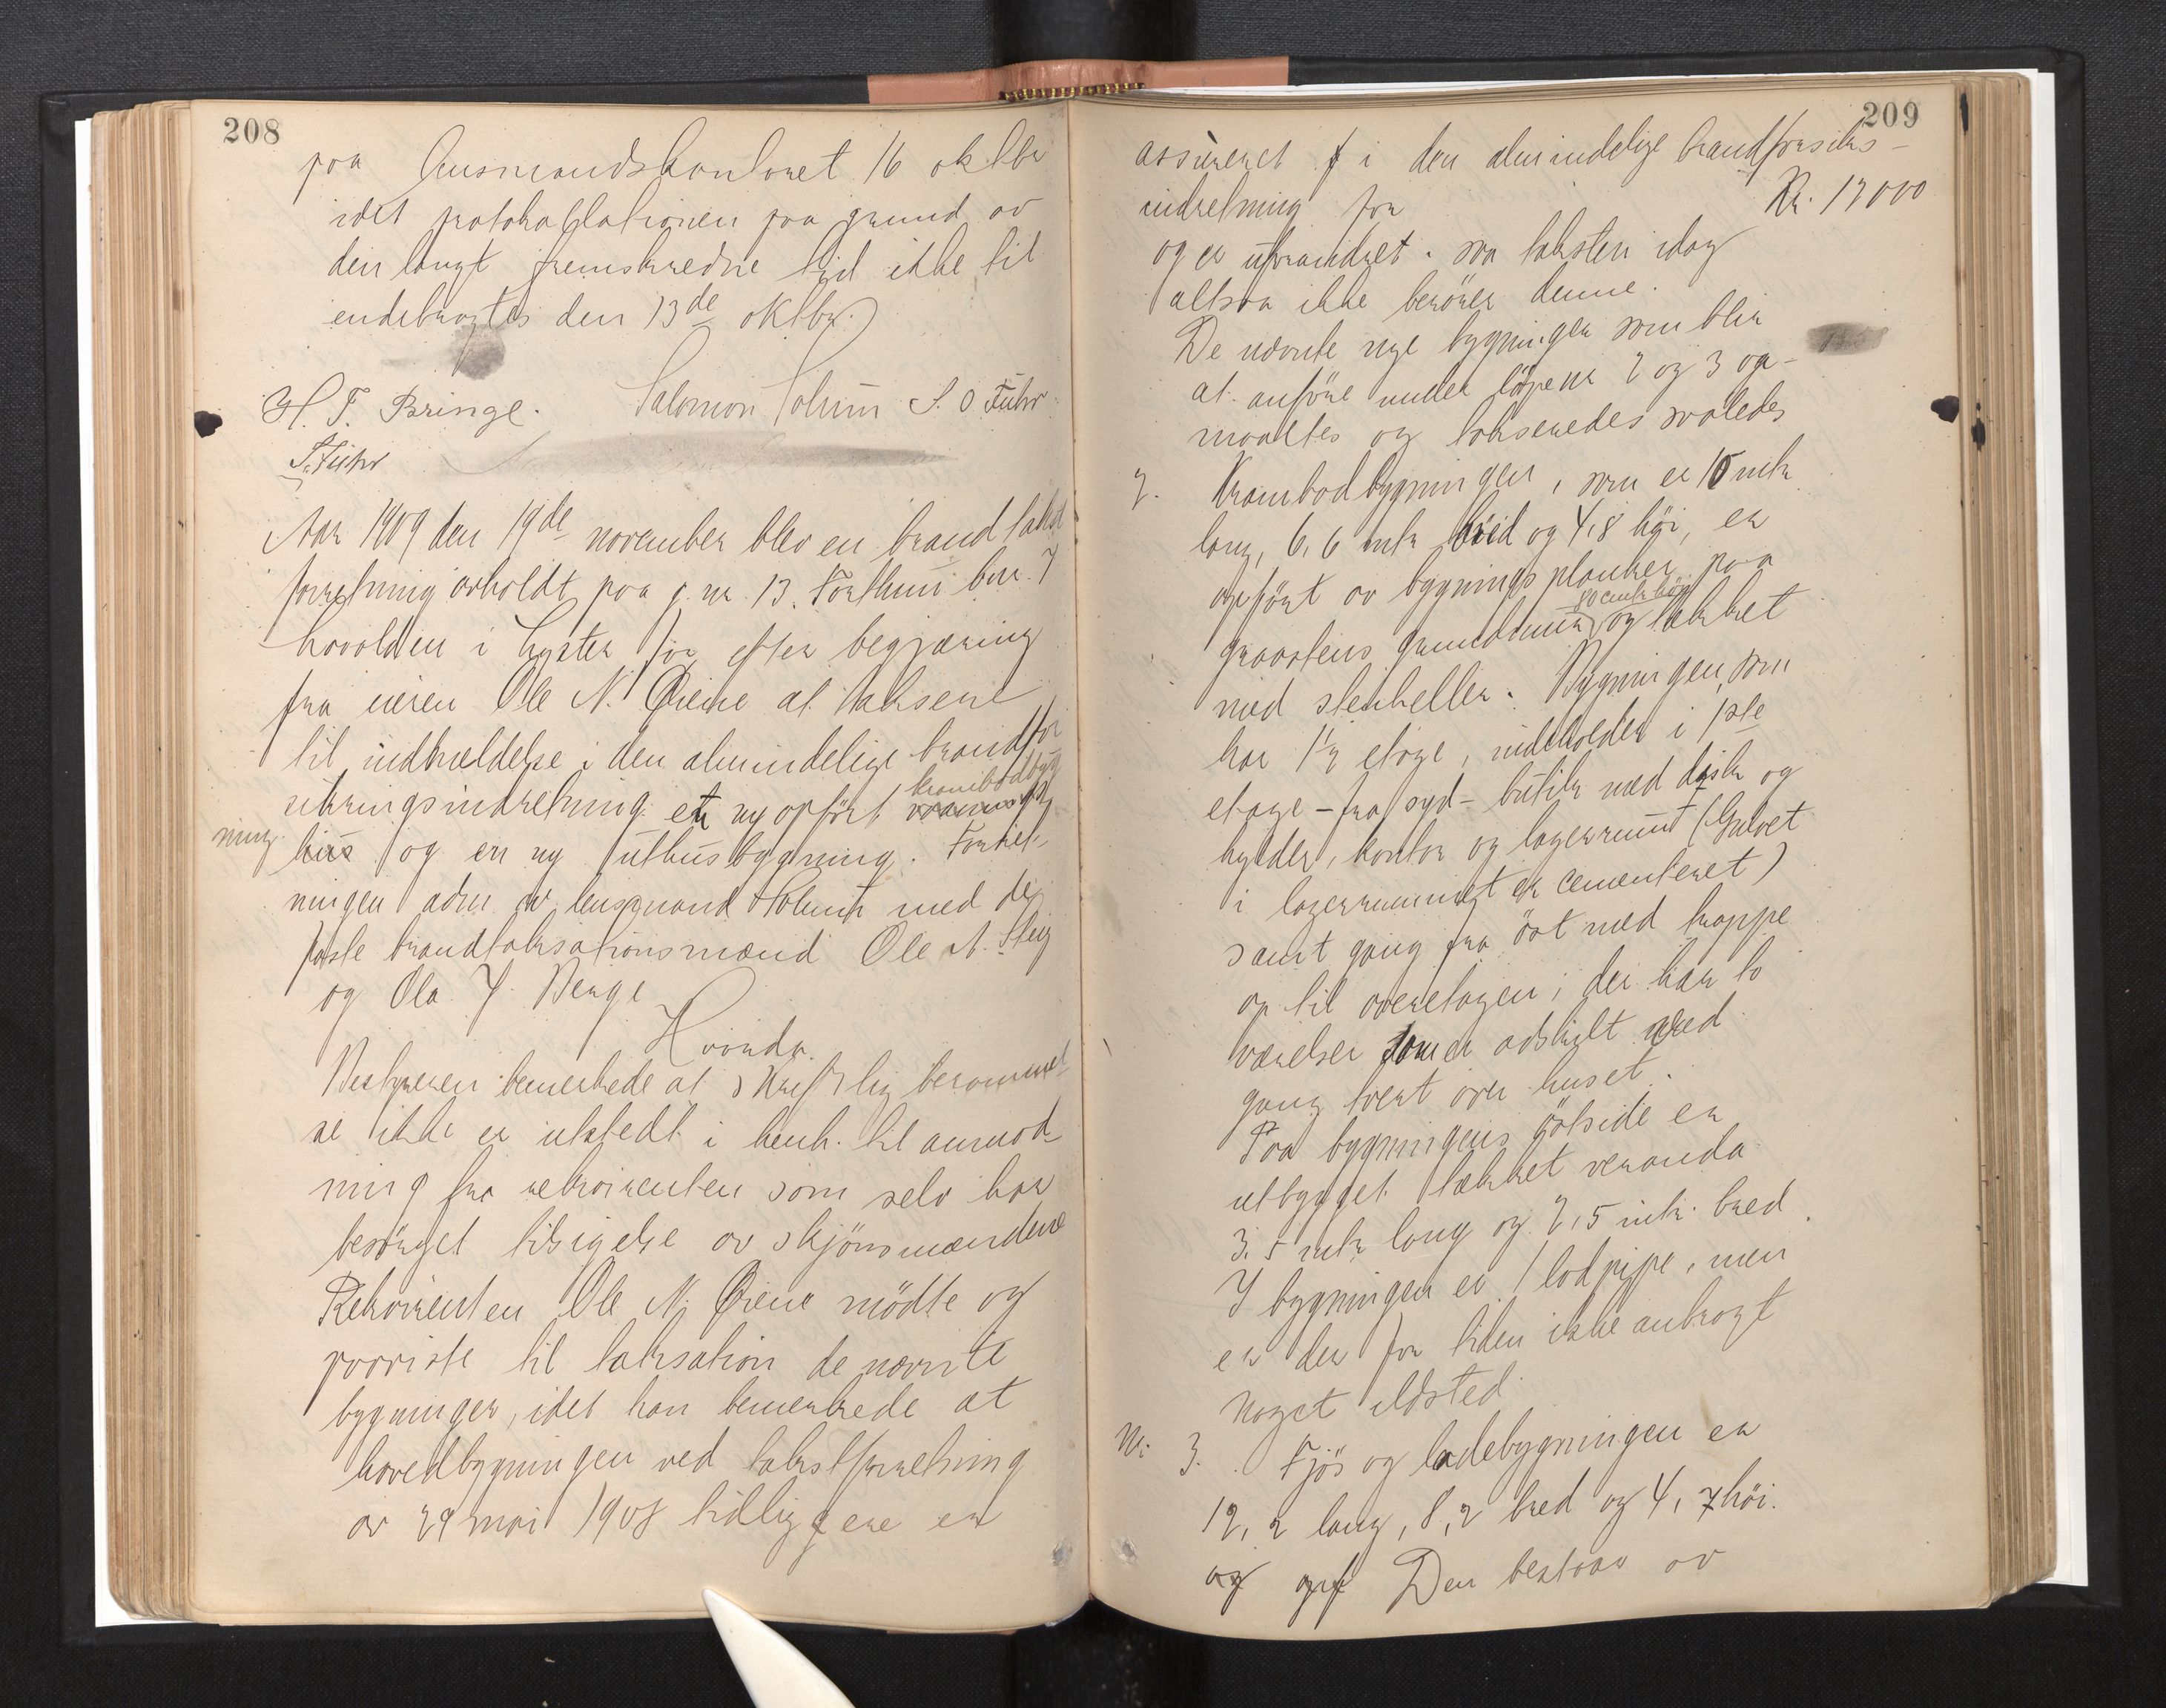 208
paa lensmandskontoret 16 oktbr
idet protokollationen paa grund av
den langt fremskredne tid ikke til
endebragtes den 13de oktbr.)
H. T. Bringe. Salomon Solum S. O Fuhr
T. Fuhr
Aar 1909 den 19de november blev en brandtakst
forretning avholdt paa g. nr. 13. Fortun bnr. 7
i Lyster for efter begjæring
fra eieren Ole N. Øiene at taksere
til indmeldelse i den almindelige brandfor
sikringsindretning en ny opført krambodbyg
ning hus og en ny uthusbygning. Forret-
ningen adm. av lensmand Solum med de
faste brandtaksationsmænd Ole A. Steig
og Ola J. Berge
Hvorda.
Bestyreren bemerkede at skriftlig berammel-
se ikke er utstedt i henh. til anmod
ning fra rekvirenten som selv har
besørget tilsigelse av skjønsmændene
Rekvirenten Ole N. Øiene mødte og
paaviste til taksation de nævnte
bygninger, idet han bemerkede at
hovedbygningen ved takstforretning
av 29 mai 1908 tidligere er
209
assureret f i den almindelige brandforsikr-
indretning for Kr. 12000
og er uforandret. saa taksten idag
altsaa ikke berører denne.
De nævnte nye bygninger som blir
at anføre under løpenr 2 og 3 op-
maaltes og takseredes saaledes
2. Krambodbygningen, som er 10 mtr
lang, 6,6 mtr bred og 4,8 høi, er
opført av bygningsplanker paa
80 cmtr høi
graastens grundmur og tækket
med stenheller. Bygningen, som
har 1½ etage, indeholder i 1ste
etage – fra syd – butik med disk og
hylder, kontor og lagerrum (Gulvet
i lagerrummet er cementeret)
samt gang fra øst med trappe
op til overetagen; der har to
værelser som er adskilt ved
gang tvert over huset.
Paa bygningens østside er
utbygget tækket veranda
3.5 mtr lang og 2,5 mtr. bred.
I bygningen er 1 lodpipe, men
er der for tiden ikke anbragt
noget ildsted.
Nr 3. Fjøs og ladebygningen er
12,2 lang, 8,2 bred og 4,7 høi.
og opf Den bestaar av